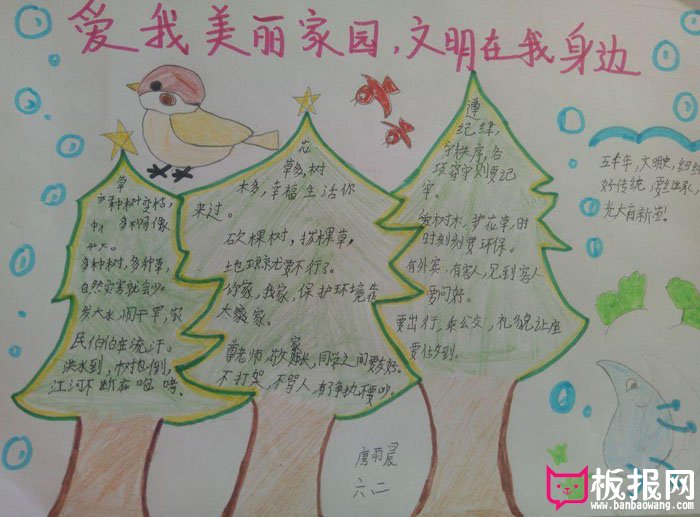 爱我美丽家园,文明在我身边
草
多种树
多种树,多种草,
自然灾害就会少。
发大水,闹干旱,农
民伯伯在流汗。
洪水到,树也倒,
江河不断在咆哮。
花
草多,树
木多,幸福生活你
来过。
砍棵树,拔棵草,
地球
你家,我家,保护环境靠
大家。
尊老师,敬家长,同学之间要友好。
不打架,不骂人,有了争执不要吵。
遵
纪律,
守秩序,各
项守则要记
牢。
爱树木,护花草,时
时刻刻要环保。
有外宾,有客人,见到客人
要问好。
要出行,乘公交,礼貌让座
要做到。
五千年,文明史,
好传统
光大有新
唐雨晨
六二
板报网
www.banbaowang.com